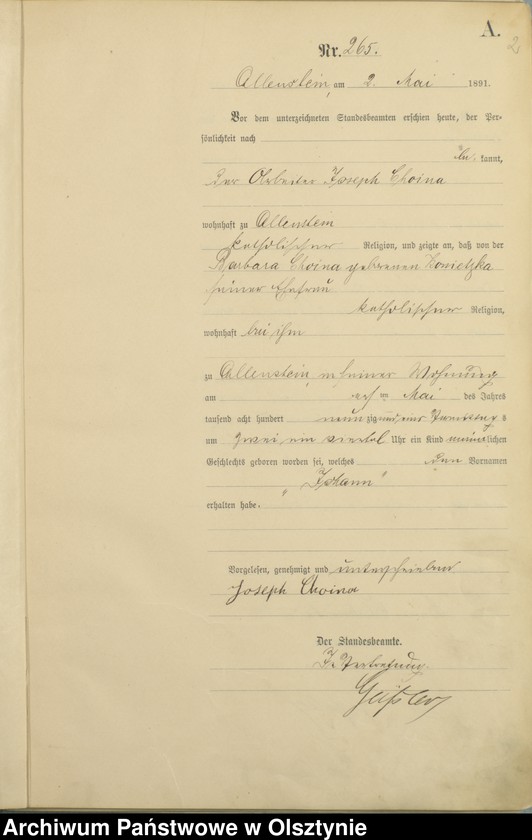 A.
2
Nr. 265.
Allenstein, am 2. Mai 1891.
Vor dem unterzeichneten Standesbeamten erschien heute, der Per-
sönlichkeit nach
kannt,
der Arbeiter Joseph Choina
wohnhaft zu Allenstein
katholischer Religion, und zeigte an, daß von der
Barbara Choina geborenen
seiner Ehefrau
katholischer Religion,
wohnhaft bei ihm
zu Allenstein, in seiner Wohnung
am ten Mai des Jahres
tausend acht hundert neunzig und eins Vormittags
um zwei ein viertel Uhr ein Kind männlichen
Geschlechts geboren worden sei, welches den Vornamen
„Johann“
erhalten habe.
Vorgelesen, genehmigt und unterschrieben
Joseph Choina
Der Standesbeamte.
In Vertretung.
Archiwum Państwowe w Olsztynie